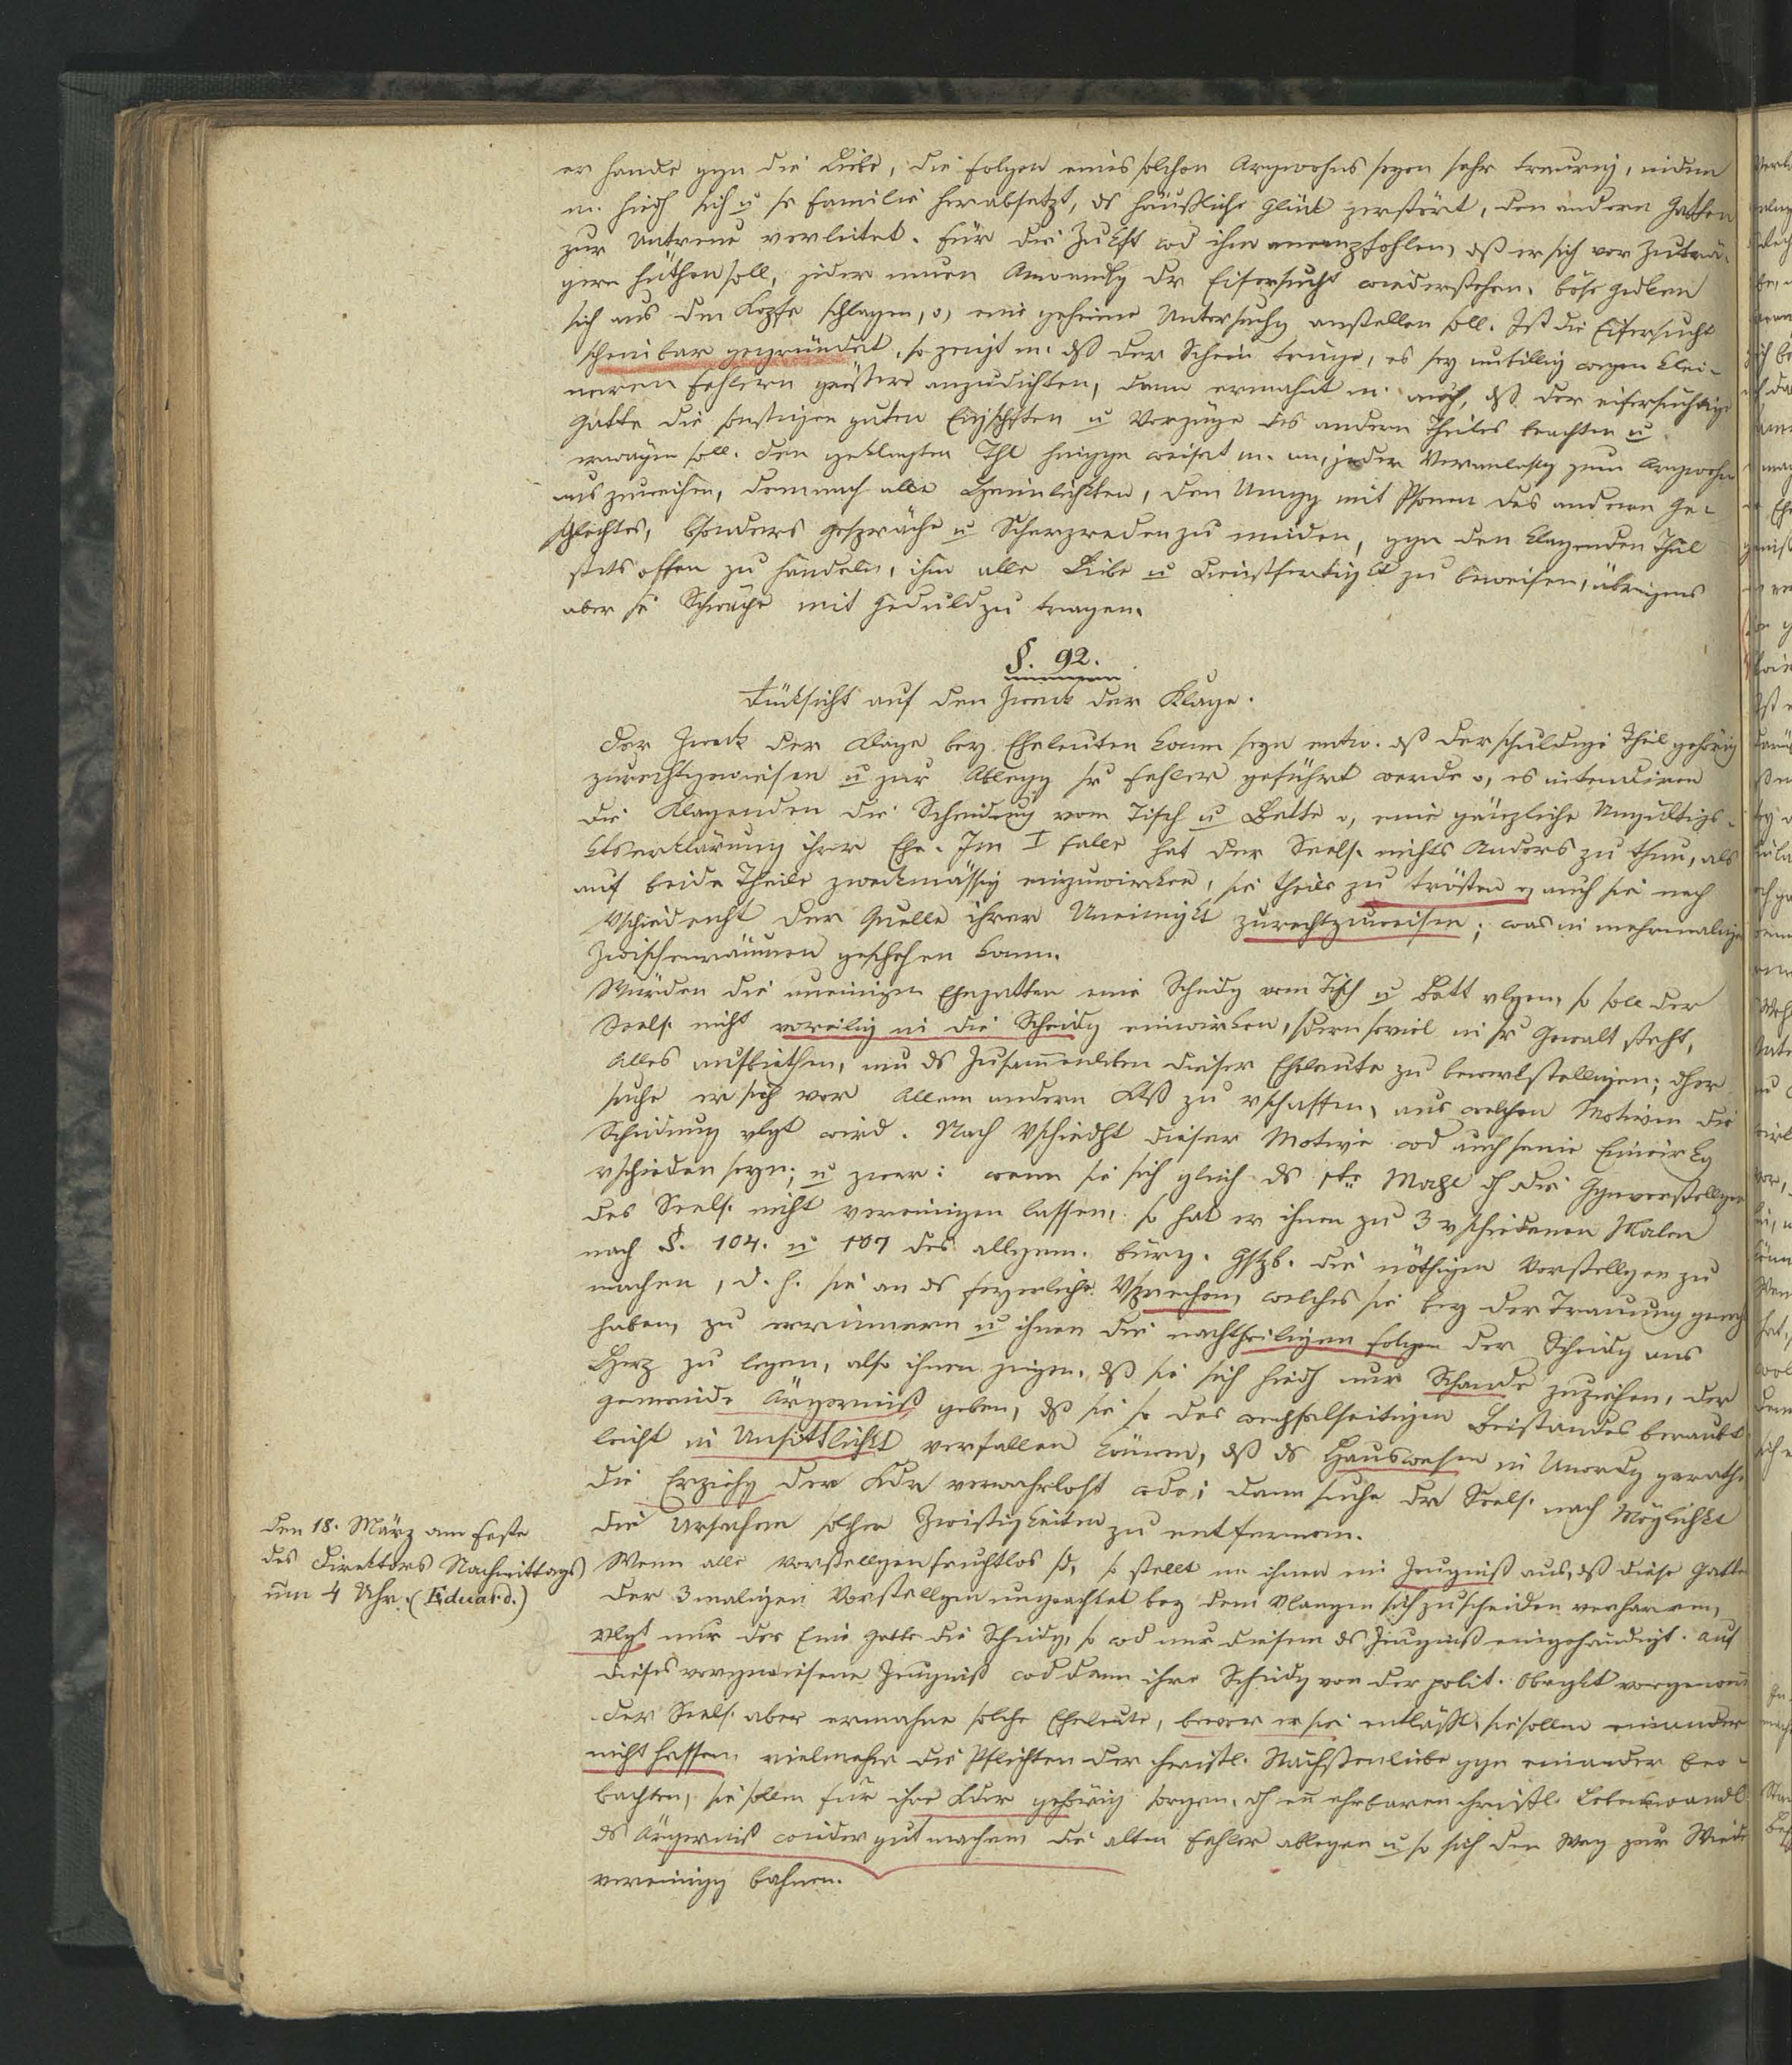 er handle ggn die Liebe, die Folgen eines solchen Argwohns seyen sehr traurig, indem
m. hiedh sich u se Familie herabsetzt, ds häußliche Glük zerstört, den andern Gatten
zur Untreue verleitet. Für die Zukft wd ihm anempfohlen, dß er sich vor Zuträ-
gern hüthen soll, jeder neuen Anwandlg dr Eifersucht wiederstehen, böse Gedken
sich aus dem Kopfe schlagen, o, eine geheime Untersuchg anstellen soll. Ist die Eifersucht
scheinbar gegründet, so zeigt m. dß der Schein trüge, es sey unbillig wegen klei-
neren Fehlern größere anzudichten, dann ermahnt m. auch, dß der eifersüchtige
Gatte die sonstigen guten Eigschften u Vorzüge des andern Theiles beachten u
erwägen soll. Den geklagten Thl hinggn weiset m. an, jeder Veranlassg zum Argwohn
auszuweichen, demnach alle Heimlichkten, den Umgg mit Psonen des anderen Ge-
schlechtes, bsonders Gespräche u Scherzreden zu meiden, ggn den klagenden Theil
stets offen zu handeln, ihm alle Liebe u Dienstfertigkt zu beweisen, übrigens
aber se Schwäche mit Geduld zu tragen.
§. 92.
Rüksicht auf den Zwek der Klage.
Der Zwek der Klage bey Eheleuten kann seyn entw. dß der schuldige Theil gehörig
zurechtgewiesen u zur Ablegg sr Fehler geführt werde o, es intendiren
die Klagenden die Scheidung vom Tisch u Bette o, eine gänzliche Ungültigk-
ktserklärung ihrer Ehe. Im I Falle hat der Seels. nichts Anders zu thun, als
auf beide Theile zwekmässig einzuwirken, sie theils zu trösten, auch sie nach
Vschiedenht der Quelle ihrer Uneinigkt zurechtzuweisen; was in mehrmaligen
Zwischenräumen geschehen kann.
Würden die uneinigen Ehegatten eine Scheidg vom Tisch u Bett vlgen, so soll der
Seels. nicht voreilig in die Scheidg einwirken, sdern soviel in sr Gewalt steht,
Alles aufbiethen, um ds Zusammenleben dieser Eheleute zu bewerkstelligen; dher
suche er sich vor Allem andern Klß zu vschaffen, aus welchen Motiven die
Scheidung vlgt wird. Nach Vschiedht dieser Motive wd auch seine Einwirkg
vschieden seyn; u zwar: wenn sie sich gleich ds 1te Mahl dh die Ggnvorstellgen
des Seels. nicht vereinigen lassen, so hat er ihnen zu 3 vschiedenen Malen
nach §. 104. u 107 des allgem. bürg. Gstzb. die nöthigen Vorstellgen zu
machen, d. h. sie an ds feyerliche Vsprechen, welches sie bey der Trauung gemcht
haben, zu errinnern u ihnen die nachtheiligen Folgen der Scheidg ans
Herz zu legen, also ihnen zeigen, dß sie sich hiedh nur Schande zuziehen, der
Gemeinde Ärgerniß geben, dß sie so des wechselseitigen Beistandes beraubt
leicht in Unsittlichkt verfallen können, dß ds Hauswesen in Unordg gerathe
die Erziehg der Kdr verwahrlost wde; dann suche dr Seels. nach Möglichkt
die Ursachen solcher Zwistigkeiten zu entfernen.
Wenn alle Vorstellgen fruchtlos sd, so stellt m ihnen ein Zeugniß aus, dß diese Gatten
der 3 maligen Vorstellgen ungeachtet bey dem Vlangen sich zu scheiden verharren,
vlgt nur der Eine Gatte die Scheidg, so wd nur diesem ds Zeugniß eingehändigt. Auf
dieses vorgewiesene Zeugniß wd dann ihre Scheidg von der polit. Obrgkt vorgenom̄
Der Seels. aber ermahne solche Eheleute, bevor er sie entläßt, sie sollen einander
nicht hassen vielmehr die Pflichten der christl. Nächstenliebe ggn einander beo-
bachten, sie sollen für ihre Kdr gehörig sorgen, dh en ehrbaren christl. Lebenswandl
ds Ärgerniß wieder gut machen die alten Fehler ablegen u so sich den Weg zur Wieder
vereinigg bahnen.
Den 18. März am Feste
des Direktors Nachmittags
um 4 Uhr. (Eduard.)